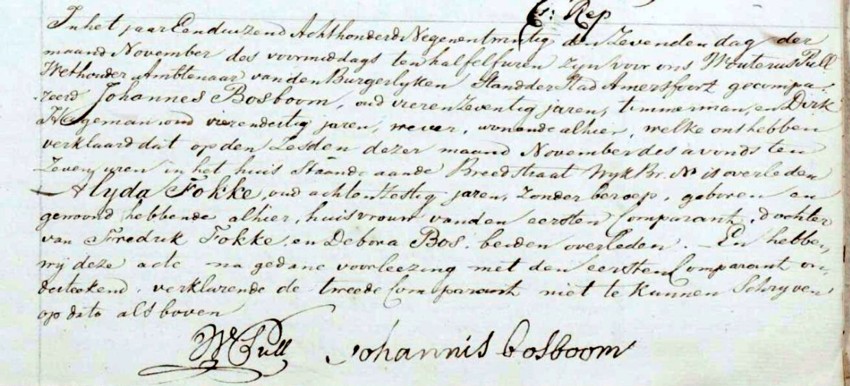 G: Rep
In het jaar Eenduizend Achthonderd Negenentwintig den Zevenden dag der
maand November des voormiddags ten half elf uren zyn voor ons Wouterus Pull
Wethouder Ambtenaar van den Burgerlyken Stand der Stad Amersfoort gecompa-
reerd Johannes Bosboom, oud vierenzeventig jaren, timmerman, en Dirk
Hegeman, oud vierendertig jaren, wever, wonende alhier, welke ons hebben
verklaard dat op den Zesden dezer maand November des avonds ten
Zeven uren in het huis staande aan de Breedstraat Wyk Br. N is overleden
Alyda Fokke, oud achtenzestig jaren, zonder beroep, geboren en
gewoond hebbende alhier, huisvrouw van den eersten Comparant, dochter
van Fredrik Fokke, en Debora Bos, beiden overleden. — En hebben
wij deze acte na gedane voorlezing met den eersten Comparant on-
derteekend, verklarende de tweede Comparant niet te kunnen Schryven
op dato als boven
W Pull Johannis bosboom